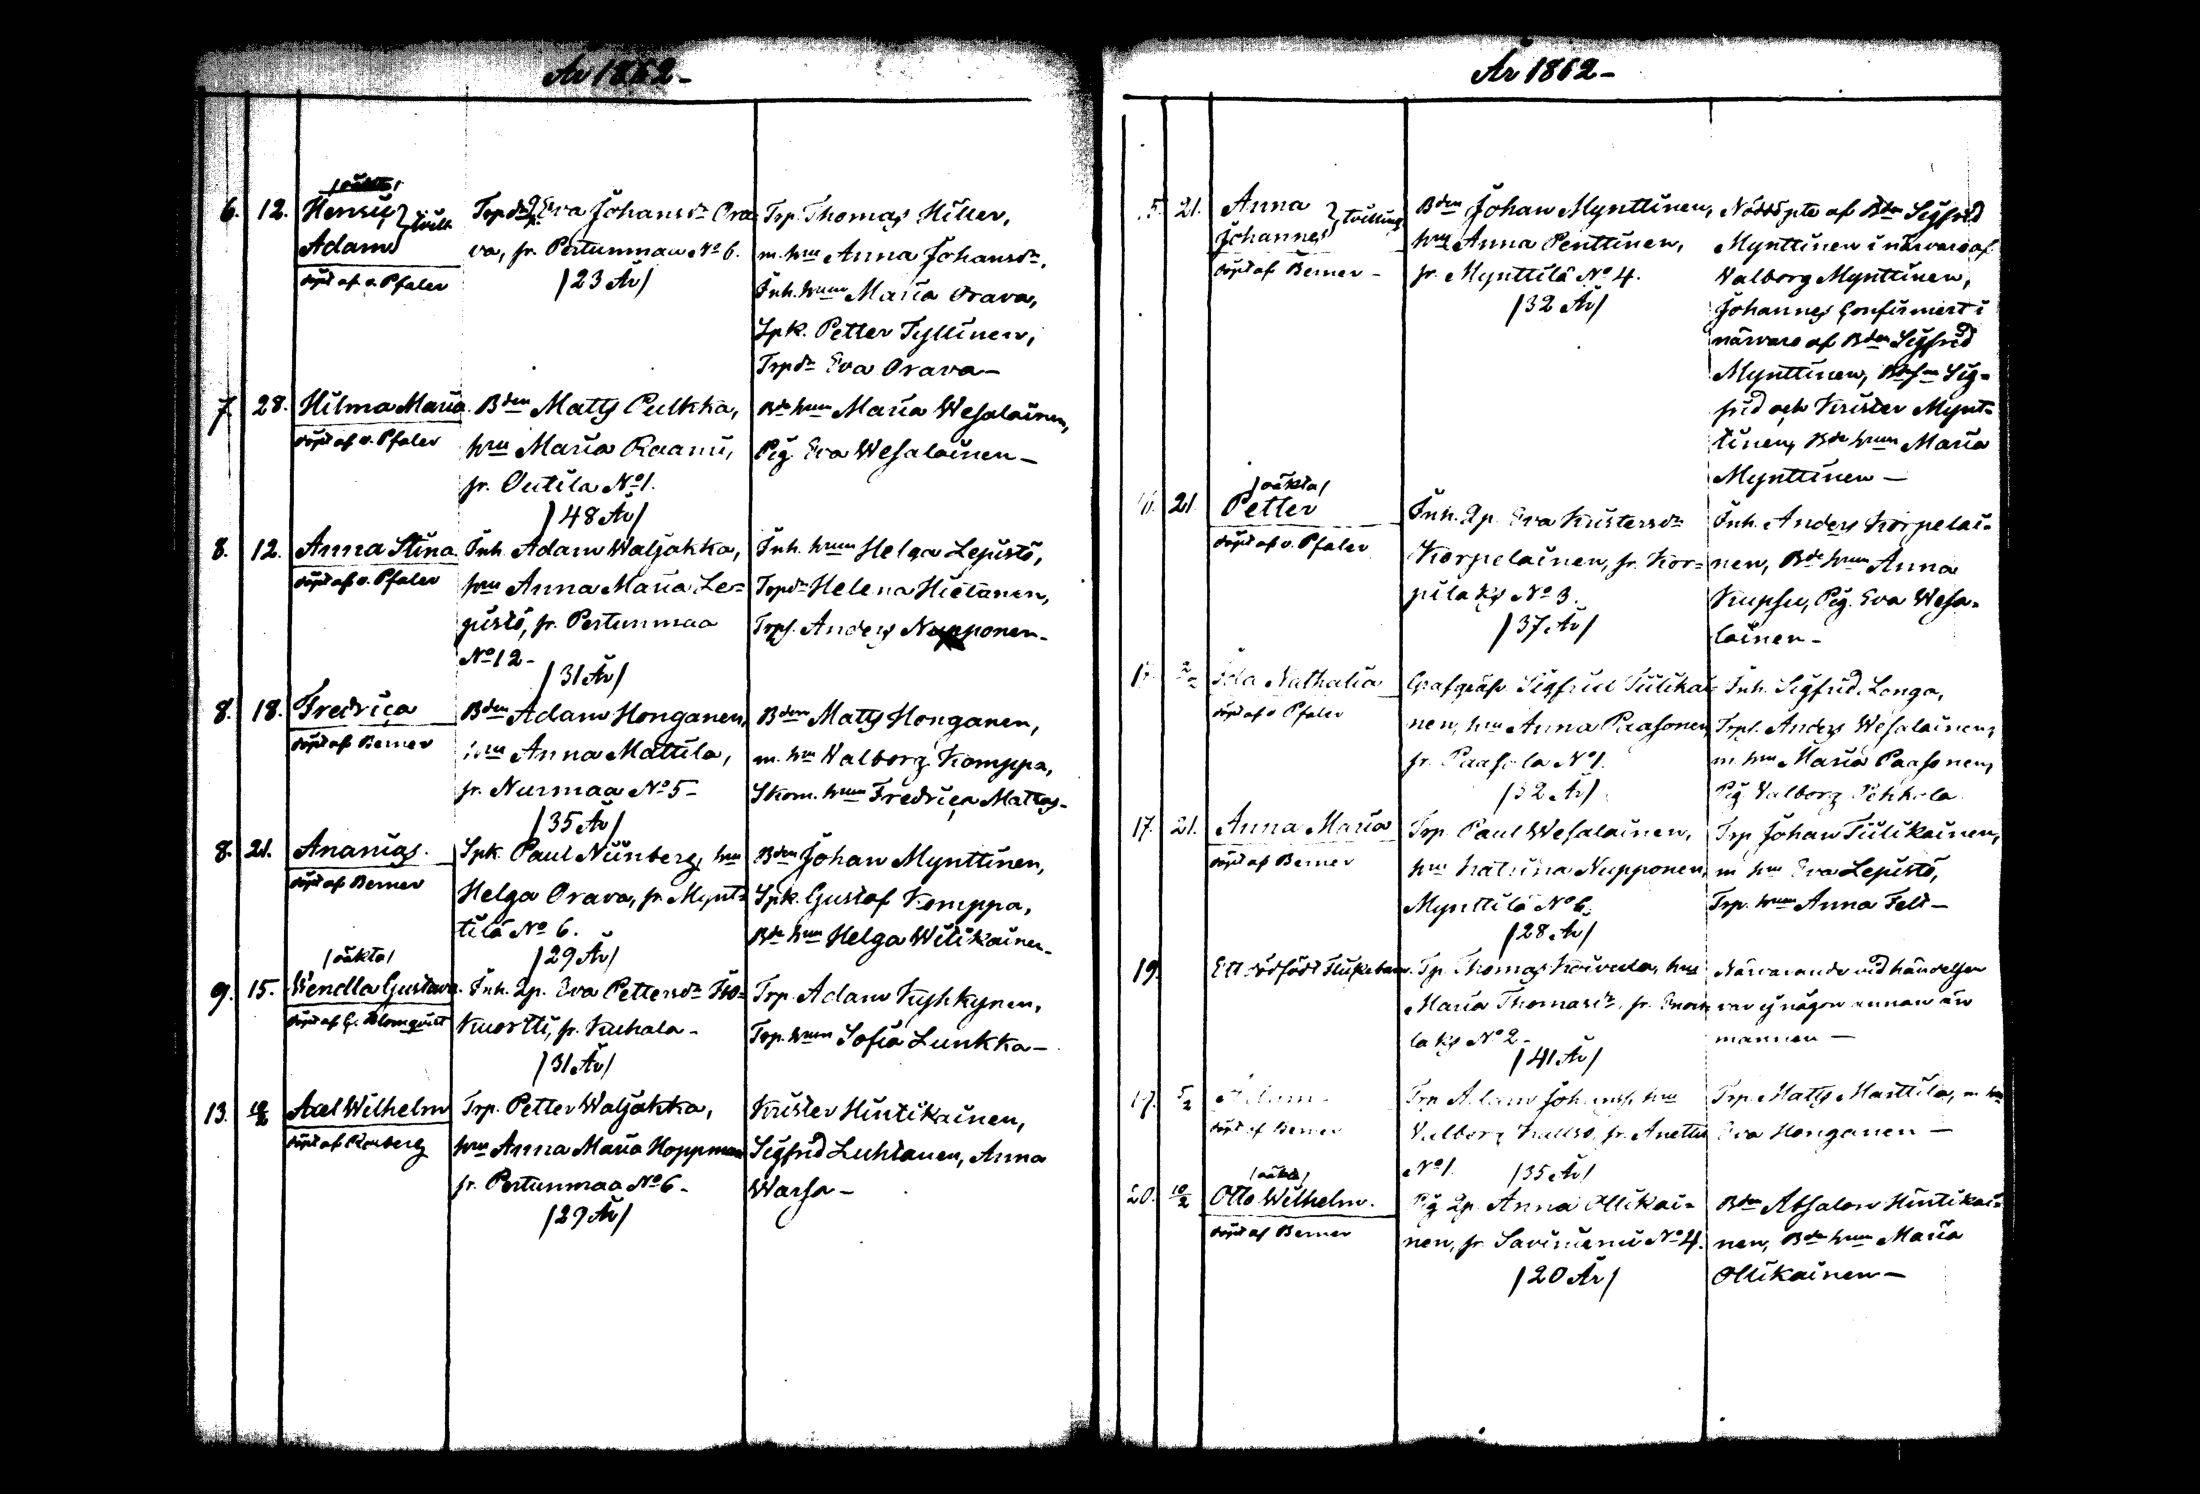 År 1862-
6. 12. /oäkta/
Henric } tvill.
Adam
döpt af v. Pfaler
Trpdr Qp. Eva Johansdr Ora-
va, fr. Pertunmaa No 6.
/23 År/
Trp. Thomas Hiller,
m. hru Anna Johansdr,
Inh. hrun Maria Orava,
Spk. Petter Tyllinen,
Trpdr Eva Orava-
7. 28. Hilma Maria
döpt af v. Pfaler
Bden Matts Pulkka,
hru Maria Raami,
fr. Outila No 1.
/48 År/
Bde hrun Maria Wesalainen,
Pig. Eva Wesalainen-
8. 12. Anna Stina
döpt af v. Pfaler
Inh. Adam Waljakka,
hru Anna Maria Le-
pistö, fr. Pertunmaa
No 12-
/31 År/
Inh. hrun Helga Lepistö,
Trpdr Helena Hietanen,
Trps. Anders Nupponen-
8. 18. Fredrica
döpt af Berner
Bden Adam Honganen,
hru Anna Mattila,
fr. Nurmaa No 5-
/35 År/
Bden Matts Honganen,
m. hru Walborg Komppa,
Skom. hrun Fredrica Mattas-
8. 21. Ananias.
döpt af Berner
Spk. Paul Nünberg, hru
Helga Orava, fr. Mynt-
tilä No 6.
/29 År/
Bden Johan Mynttinen,
Spk. Gustaf Komppa,
Bde hrun Helga Wilikainen-
9. 15. /oäkta/
Wendla Gustava.
döpt af G. Blomquist
Inh. Qp. Eva Pettersdr Iso-
Kuortti, fr. Kuhala-
/31 År/
Trp. Adam Kyhkynen,
Trp. hrun Sofia Lunkka-
13. 10/2 Axel Wilhelm
döpt af
Trp. Petter Waljakka,
hru Anna Maria Hoppman
fr. Pertunmaa No 6-
/29 År/
Krister Hintikainen,
Sigfrid Luhtanen, Anna
Warsa-
År 1862-
15. 21. Anna } tvilling
Johannes
döpt af Berner-
Bden Johan Mynttinen,
hru Anna Penttinen,
fr. Mynttilä No 4.
/32 År/
Nöddöpte af Bden Sigfrid
Mynttinen i närvaro af
Walborg Mynttinen,
Johannes Confirmert i
närvaro af Bden Sigfrid
Mynttinen, Bdesn Sig-
frid och Krister Mynt-
tinen, Bde hrun Maria
Mynttinen-
21. /oäkta/
Petter
döpt af v. Pfaler
Inh. Qp. Eva Kristersdr
Korpelainen, fr. Kor-
pilaks No 3.
/37 År/
Inh. Anders Korpelai-
nen, Bde hrun Anna
Kupsu, Pig. Eva Wesa-
lainen-
Ida Nathalia
döpt af v Pfaler
Sigfrid Tiilikai-
nen, hru Anna Paasonen,
fr. Paasola No 1.
/32 År/
Inh. Sigfrid Longa,
Trps. Anders Wesalainen,
m hru Maria Paasonen,
Pig Valborg Pekkola
17. 21. Anna Maria
döpt af Berner
Trp. Paul Wesalainen,
hru Katrina Nupponen,
Mynttilä No 6.
/28 År/
Trp Johan Tiilikainen,
m hru Eva Lepistö,
Trp. hrun Anna Felt-
19. Ett dödfödt flickebarn.
Trp. Thomas Koivula, hru
Maria Thomasdr, fr.
laks No 2-
/41 År/
Närvarande vid händelsen
var ej någon annan än
mannen-
17. 5/2 Adam-
döpt af Berner
Trp Adam Johansson, hru
Valborg fr. Anettu
No 1. /35 År/
Trp. Matts Marttila, m hru
Eva Honganen-
20. 10/2 /oäkta/
Otto Wilhelm.
döpt af Berner
Pig Qp. Anna Ollikai-
nen, fr Saviniemi No 4.
/20 År/
Bden Absalon Hintikai-
nen, Bde hrun Maria
Ollikainen-